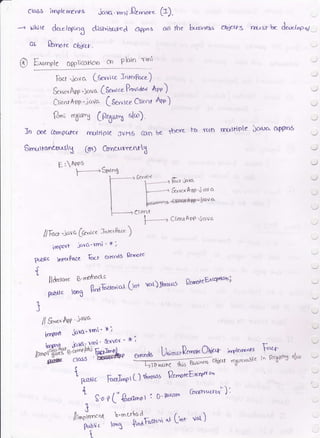 class implements java.rmi.Remote (I).
→ while developing distributed appns all the business objects must be develop
as Remote object.
* Example application on plain rmi
Fact.java (Service Interface)
ServerApp.java (Service Provider App)
ClientApp.java (Service Client App)
Rmi registry (Registry s/w).
In one Computer multiple JVMs can be there to run multiple Java appns
Simultaneously (or) Concurrently
E:\Apps
Spring
Service
Fact.java
ServerApp.java
Client
ClientApp.java
//Fact.java (Service Interface)
import java.rmi.*;
public interface Fact extends Remote
{
//declare B.methods
public long findFactorial (int val) throws RemoteException;
}
//ServerApp.java
import java.rmi.*;
import java.rmi.server.*;
public class FactImpl extends UnicastRemoteObject implements Fact
{
public FactImpl() throws RemoteException
{
S.o.p("FactImpl: 0-param Constructor");
}
//implement b.method
public long findFactorial (int val)
{